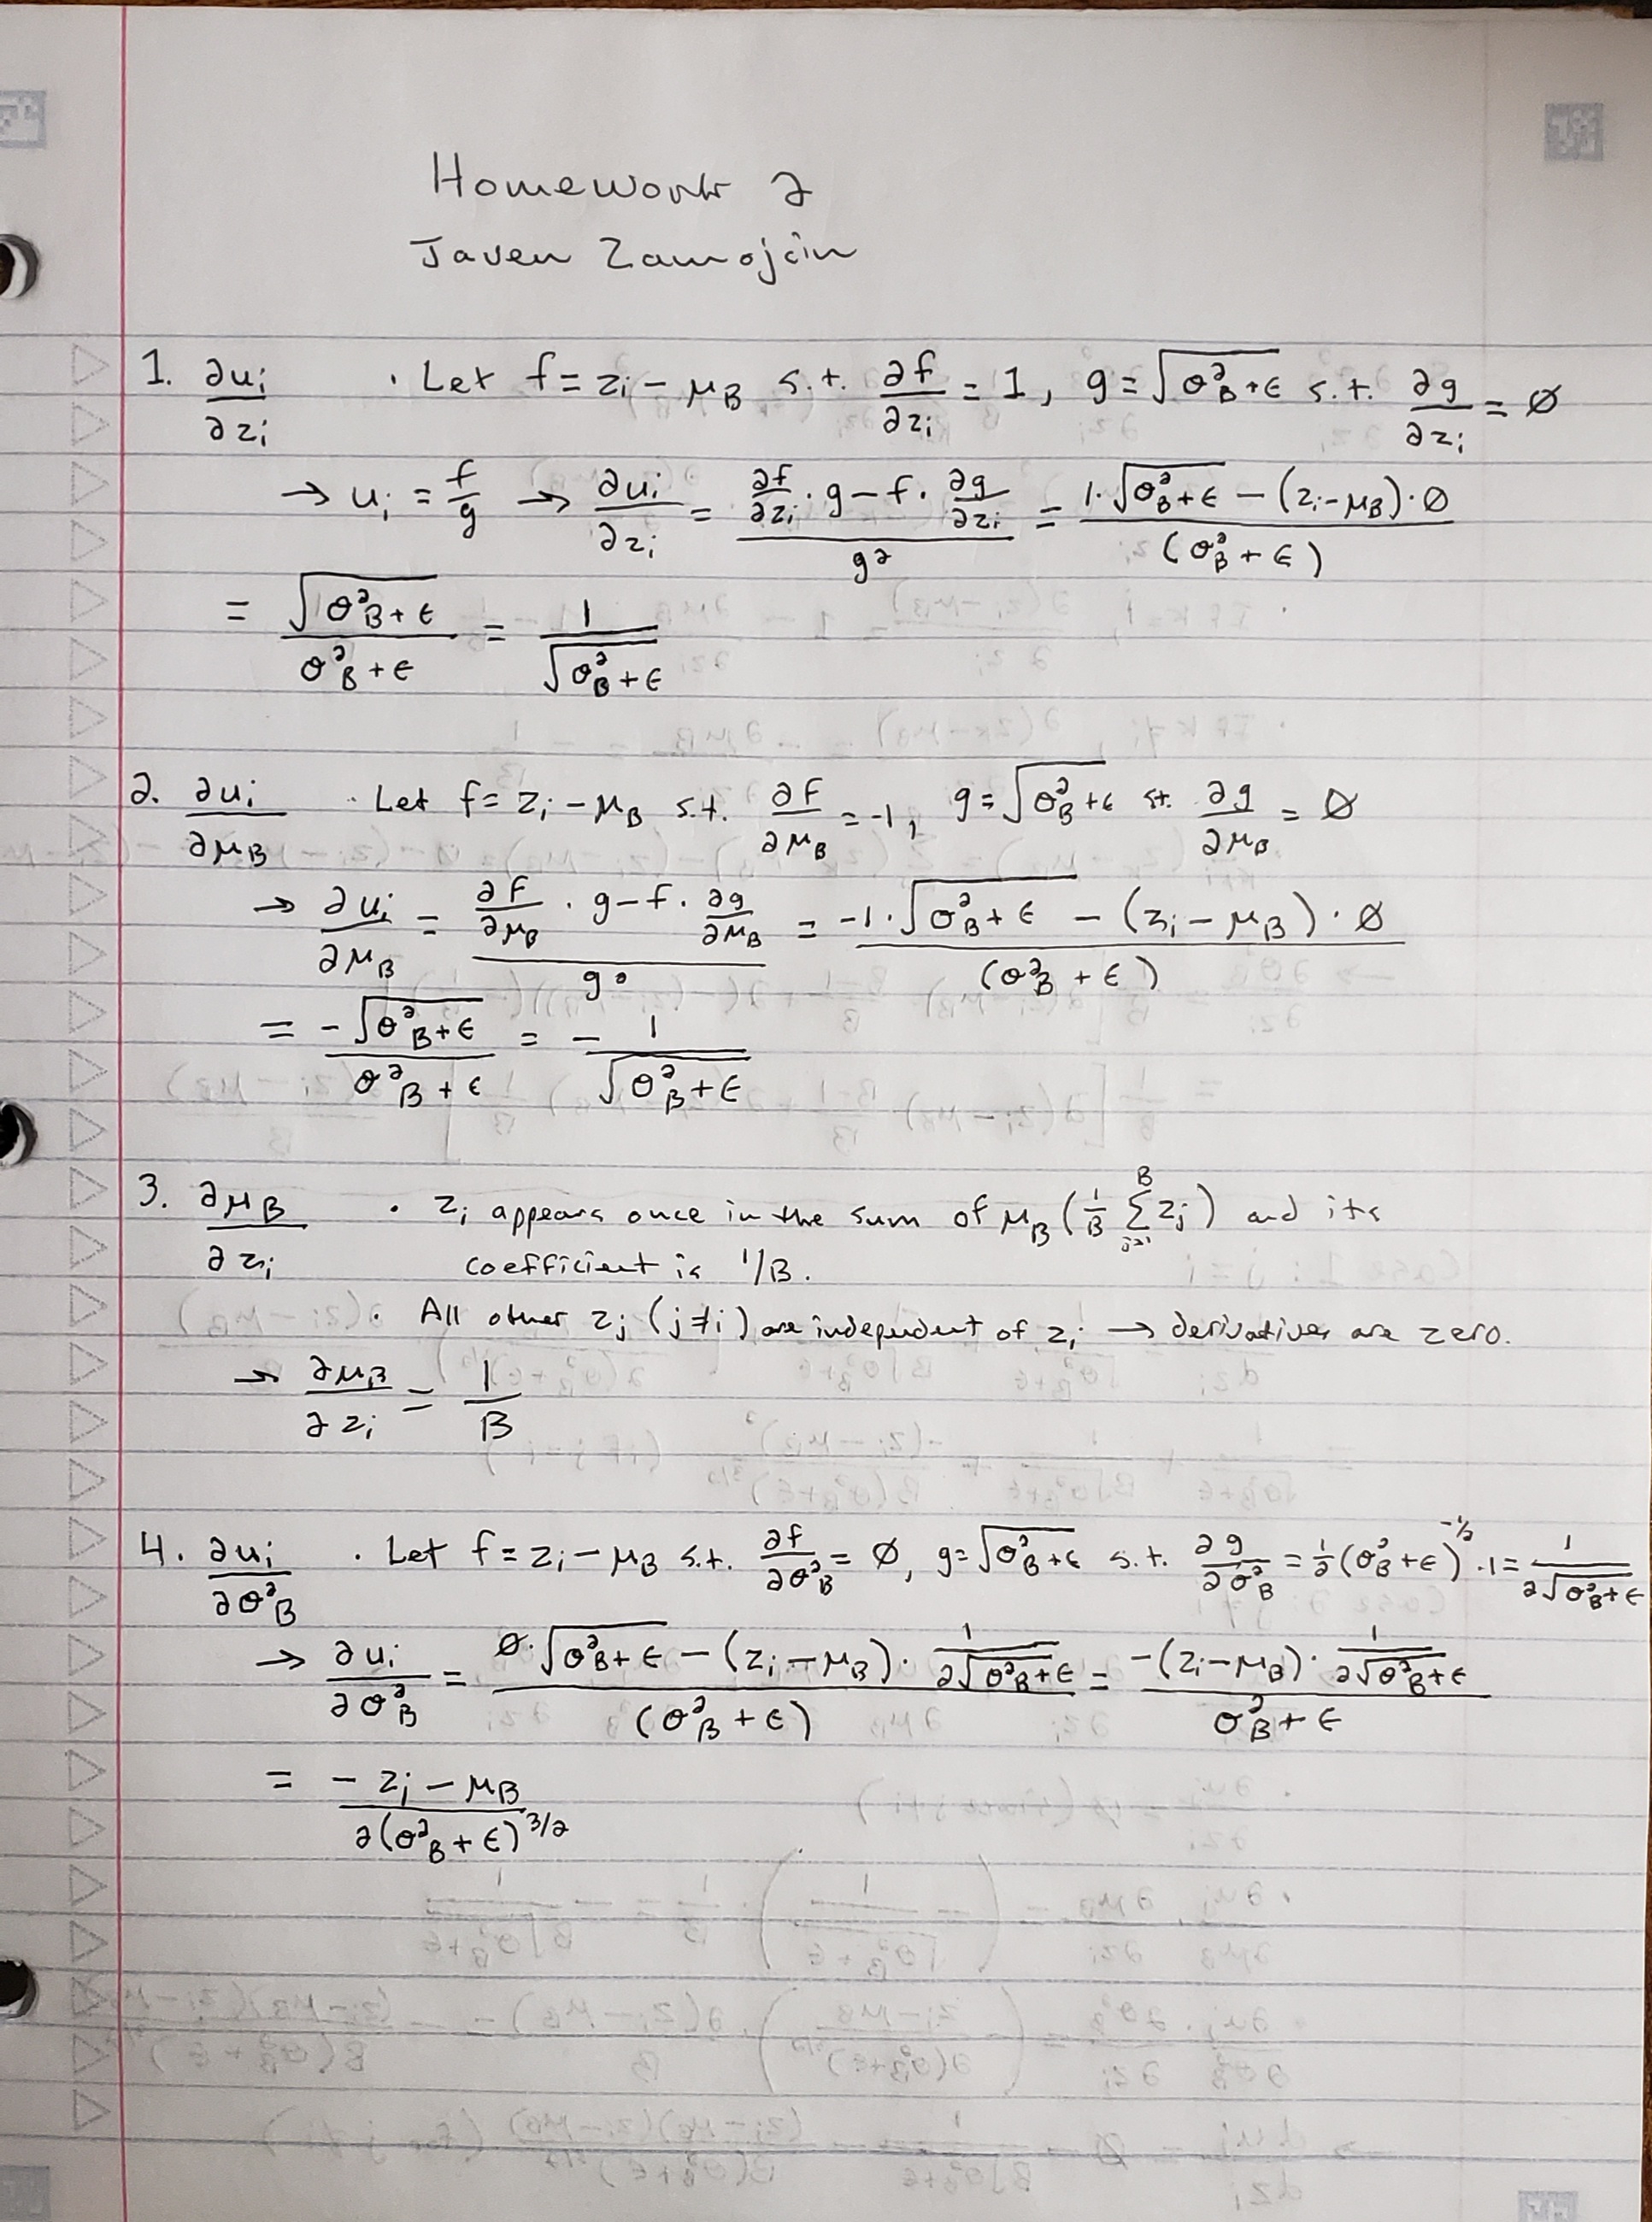 Homework 2
Javen Zamojcin
1. ∂u_i/∂z_i · Let f = z_i − μ_B s.t. ∂f/∂z_i = 1, g = √(σ²_B + ε) s.t. ∂g/∂z_i = ∅
→ u_i = f/g → ∂u_i/∂z_i = (∂f/∂z_i · g − f · ∂g/∂z_i)/g² = (1·√(σ²_B + ε) − (z_i − μ_B)·∅)/(σ²_B + ε)
= √(σ²_B + ε)/(σ²_B + ε) = 1/√(σ²_B + ε)
2. ∂u_i/∂μ_B · Let f = z_i − μ_B s.t. ∂f/∂μ_B = -1, g = √(σ²_B + ε) st. ∂g/∂μ_B = ∅
→ ∂u_i/∂μ_B = (∂f/∂μ_B · g − f · ∂g/∂μ_B)/g² = (-1·√(σ²_B + ε) − (z_i − μ_B)·∅)/(σ²_B + ε)
= -√(σ²_B + ε)/(σ²_B + ε) = − 1/√(σ²_B + ε)
3. ∂μ_B/∂z_i · z_i appears once in the sum of μ_B (1/B Σ_{j=1}^{B} z_j) and its
coefficient is 1/B.
· All other z_j (j≠i) are independent of z_i → derivatives are zero.
→ ∂μ_B/∂z_i = 1/B
4. ∂u_i/∂σ²_B · Let f = z_i − μ_B s.t. ∂f/∂σ²_B = ∅, g = √(σ²_B + ε) s.t. ∂g/∂σ²_B = ½(σ²_B + ε)^{-1/2} · 1 = 1/(2√(σ²_B + ε))
→ ∂u_i/∂σ²_B = (∅·√(σ²_B + ε) − (z_i − μ_B) · 1/(2√(σ²_B + ε)))/(σ²_B + ε) = (−(z_i − μ_B) · 1/(2√(σ²_B + ε)))/(σ²_B + ε)
= − (z_i − μ_B)/(2(σ²_B + ε)^{3/2})